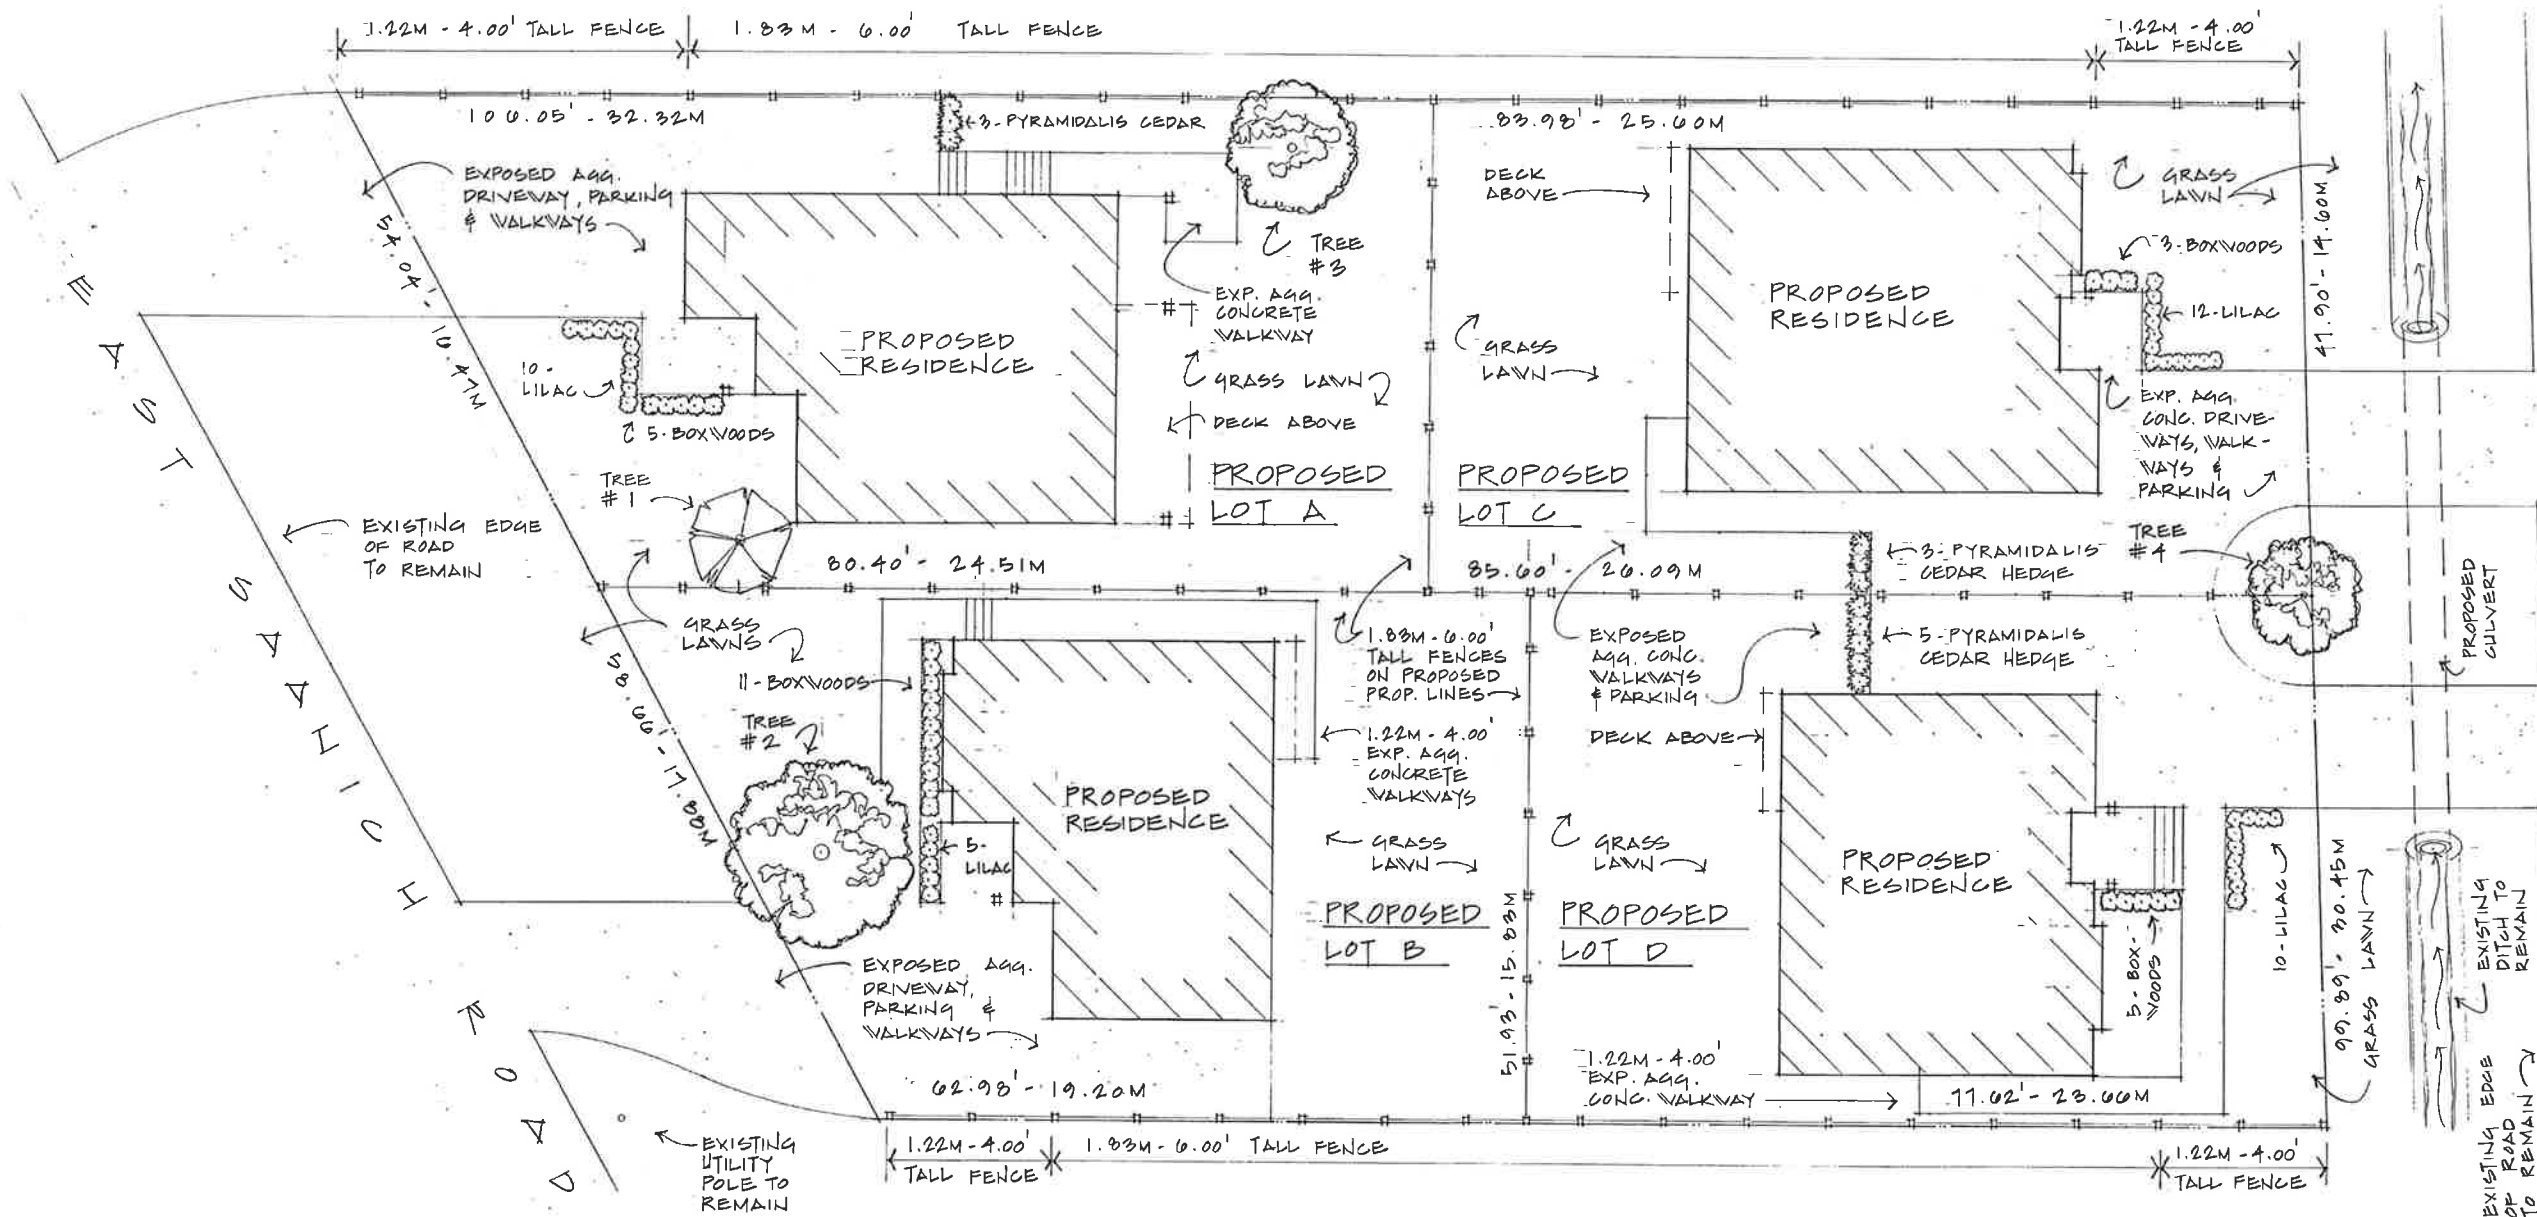 1.22M - 4.00' TALL FENCE
1.83M - 6.00' TALL FENCE
1.22M - 4.00'
TALL FENCE
106.05' - 32.32M
3-PYRAMIDALIS CEDAR
83.98' - 25.60M
EXPOSED AGG.
DRIVEWAY, PARKING
& WALKWAYS
DECK
ABOVE
GRASS
LAWN
TREE
#3
3-BOXWOODS
54.04' - 16.47M
47.90' - 14.60M
EXP. AGG.
CONCRETE
WALKWAY
PROPOSED
RESIDENCE
PROPOSED
RESIDENCE
12-LILAC
GRASS
LAWN
10-
LILAC
GRASS LAWN
5-BOXWOODS
DECK ABOVE
EXP. AGG.
CONC. DRIVE-
WAYS, WALK-
WAYS &
PARKING
TREE
#1
PROPOSED
LOT A
PROPOSED
LOT C
EXISTING EDGE
OF ROAD
TO REMAIN
TREE
#4
80.40' - 24.51M
85.60' - 26.09M
3-PYRAMIDALIS
CEDAR HEDGE
PROPOSED
CULVERT
EAST SAANICH ROAD
GRASS
LAWNS
1.83M - 6.00'
TALL FENCES
ON PROPOSED
PROP. LINES
EXPOSED
AGG. CONC.
WALKWAYS
& PARKING
5-PYRAMIDALIS
CEDAR HEDGE
58.66' - 17.88M
11-BOXWOODS
TREE
#2
1.22M - 4.00'
EXP. AGG.
CONCRETE
WALKWAYS
DECK ABOVE
PROPOSED
RESIDENCE
5-
LILAC
GRASS
LAWN
GRASS
LAWN
PROPOSED
RESIDENCE
PROPOSED
LOT B
PROPOSED
LOT D
51.93' - 15.83M
5-BOX-
WOODS
10-LILAC
99.89' - 30.45M
GRASS LAWN
EXISTING
DITCH TO
REMAIN
EXPOSED AGG.
DRIVEWAY,
PARKING &
WALKWAYS
1.22M - 4.00'
EXP. AGG.
CONC. WALKWAY
62.98' - 19.20M
77.62' - 23.66M
EXISTING
UTILITY
POLE TO
REMAIN
1.22M - 4.00'
TALL FENCE
1.83M - 6.00' TALL FENCE
1.22M - 4.00'
TALL FENCE
EXISTING EDGE
OF ROAD
TO REMAIN